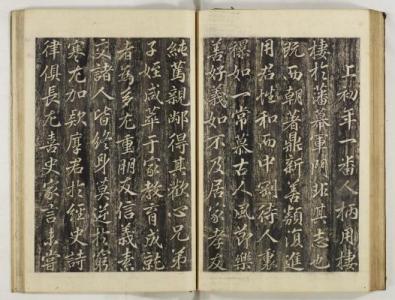 上初年一番人柄用棲
棲於藩幕軍間非其志也
既而朝著鼎新善類復進
用君性和而中剛待人裏
襮如一常慕古人風節樂
善好義如不及居家孝友
純篤親得其歡心兄弟
子姪咸萃于家教育成就
者為多尤重朋友信義素
交諸人皆終身莫逆於窮
寒尤加欵厚君於經史詩
律俱長尤喜史家言未嘗